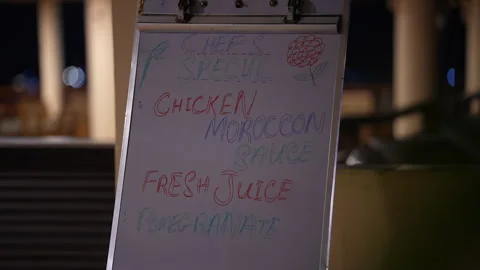 CHEF'S
SPECIAL
CHICKEN
MOROCCON
SAUCE
FRESH JUICE
POMEGRANATE